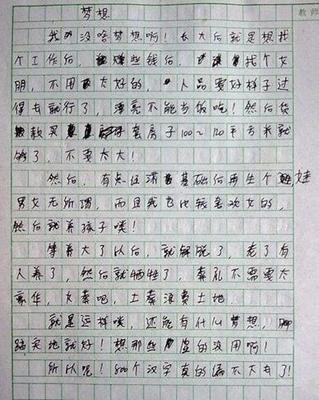 梦想
我没啥梦想啊！长大后就是想找
个工作后，赚些钱后，找个女
朋，不用太好的，人品要好样子过
得去就行了，漂亮不能当饭吃！然后贷
款买套房子100~120平方米就
够了，不要太大！
然后，有点经济基础后再生个娃
男女无所谓，而且我也比较喜欢女的，
然后就养孩子喽！
等养大了以后，就解脱了，老了有
人养了，然后就牺牲了，葬礼不需要太
豪华，火葬吧，土葬浪费土地。
就是这样喽，还能有什么梦想，脚
踏实地就好！想那些虚的没用啊！
所以呢！800个汉字真的写不大出了！